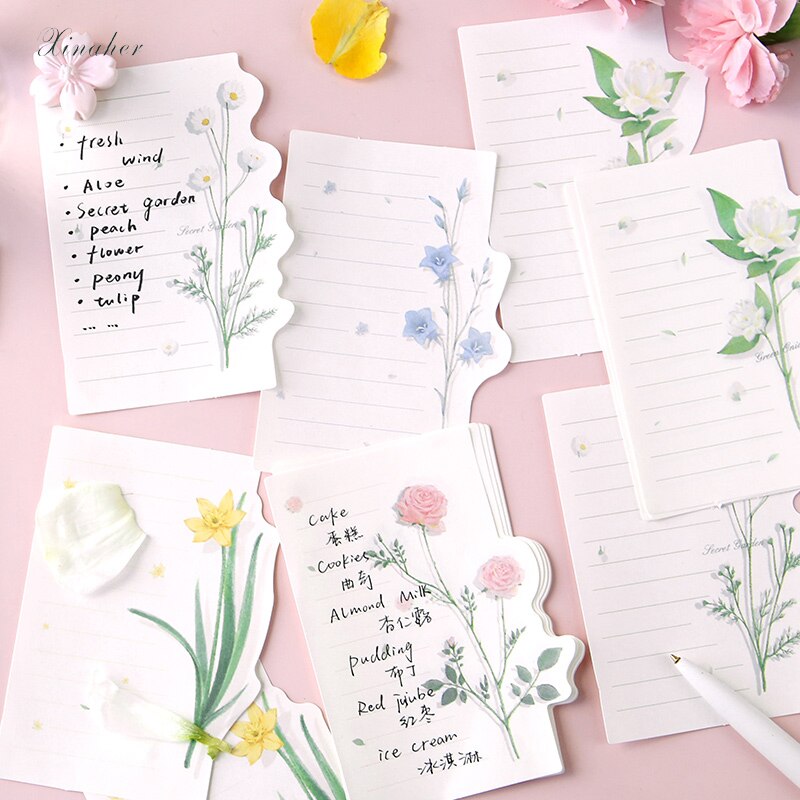 Xinaher
• fresh
wind
• Aloe
• Secret garden
• peach
Secret Garden
• flower
• peony
• tulip
... ...
Cake
蛋糕
Cookies
曲奇
Almond Milk
杏仁露
pudding
布丁
Red jujube
红枣
ice cream
冰淇淋
Secret Garden